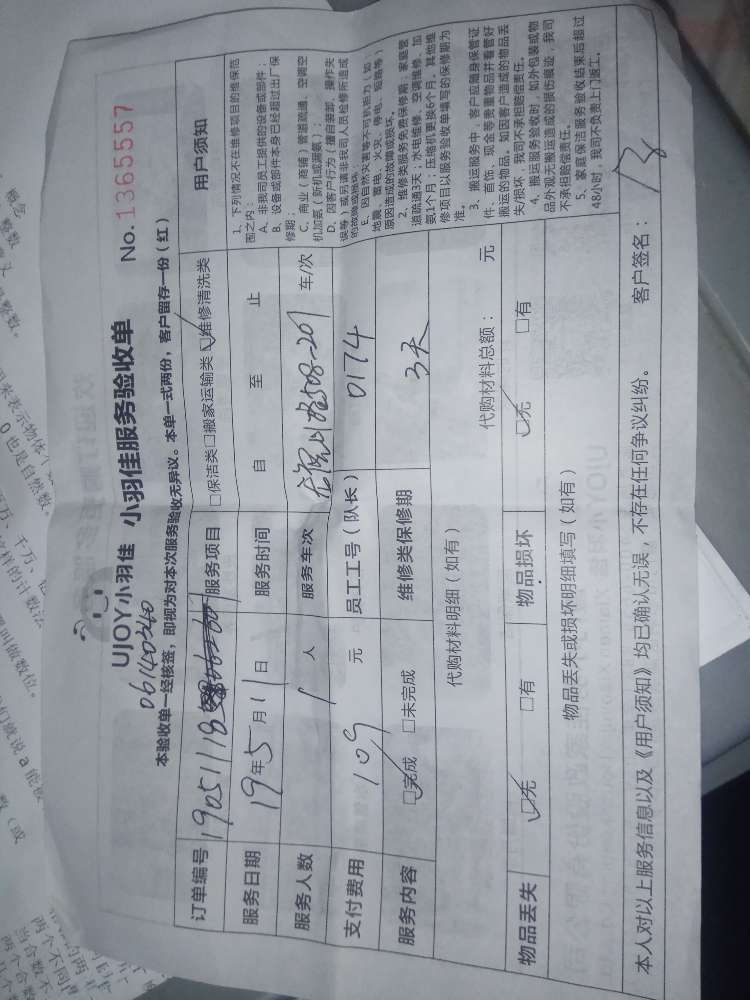 UJOY小羽佳 小羽佳服务验收单 No.1365557
06140340
本验收单一经核签，即视为对本次服务验收无异议。本单一式两份，客户留存一份（红）
订单编号 19051118 服务项目 □保洁类□搬家运输类□维修清洗类
服务日期 19年5月11日 服务时间 自 至 止
服务人数 1人 服务车次 车/次
支付费用 109元 员工工号（队长） 0174
服务内容 □完成 □未完成 维修类保修期 3天
代购材料明细（如有） 代购材料总额： 元
物品丢失 □无 □有 物品损坏 □无 □有
物品丢失或损坏明细填写（如有）
用户须知
1、下列情况不在维修项目的维保范
围之内：
A、非我司员工提供的设备或部件；
B、设备或部件本身已经超过出厂保
修期；
C、商业（商铺）管道疏通、空调空
机加氨（新机或漏氨）；
D、因客户行为（擅自装卸、操作失
误等）或另请非我司人员检修所造成
的故障或损坏；
E、因自然灾害等不可抗拒力（如：
地震、雷电、火灾、停电、短路等）
原因造成的故障或损坏。
2、维修类服务免费保修期：家庭管
道疏通3天；水电维修、空调维修、加
氨1个月；压缩机更换6个月。其他维
修项目以服务验收单填写的保修期为
准。
3、搬运服务中，客户应随身保管证
件、首饰、现金等贵重物品并看管好
搬运的物品。如因客户造成的物品丢
失/损坏，我司不承担赔偿责任。
4、搬运服务验收时，如外包装或物
品外观无搬运造成的损伤痕迹，我司
不承担赔偿责任。
5、家庭保洁服务验收结束后超过
48小时，我司不负责上门返工。
本人对以上服务信息以及《用户须知》均已确认无误，不存在任何争议纠纷。 客户签名：